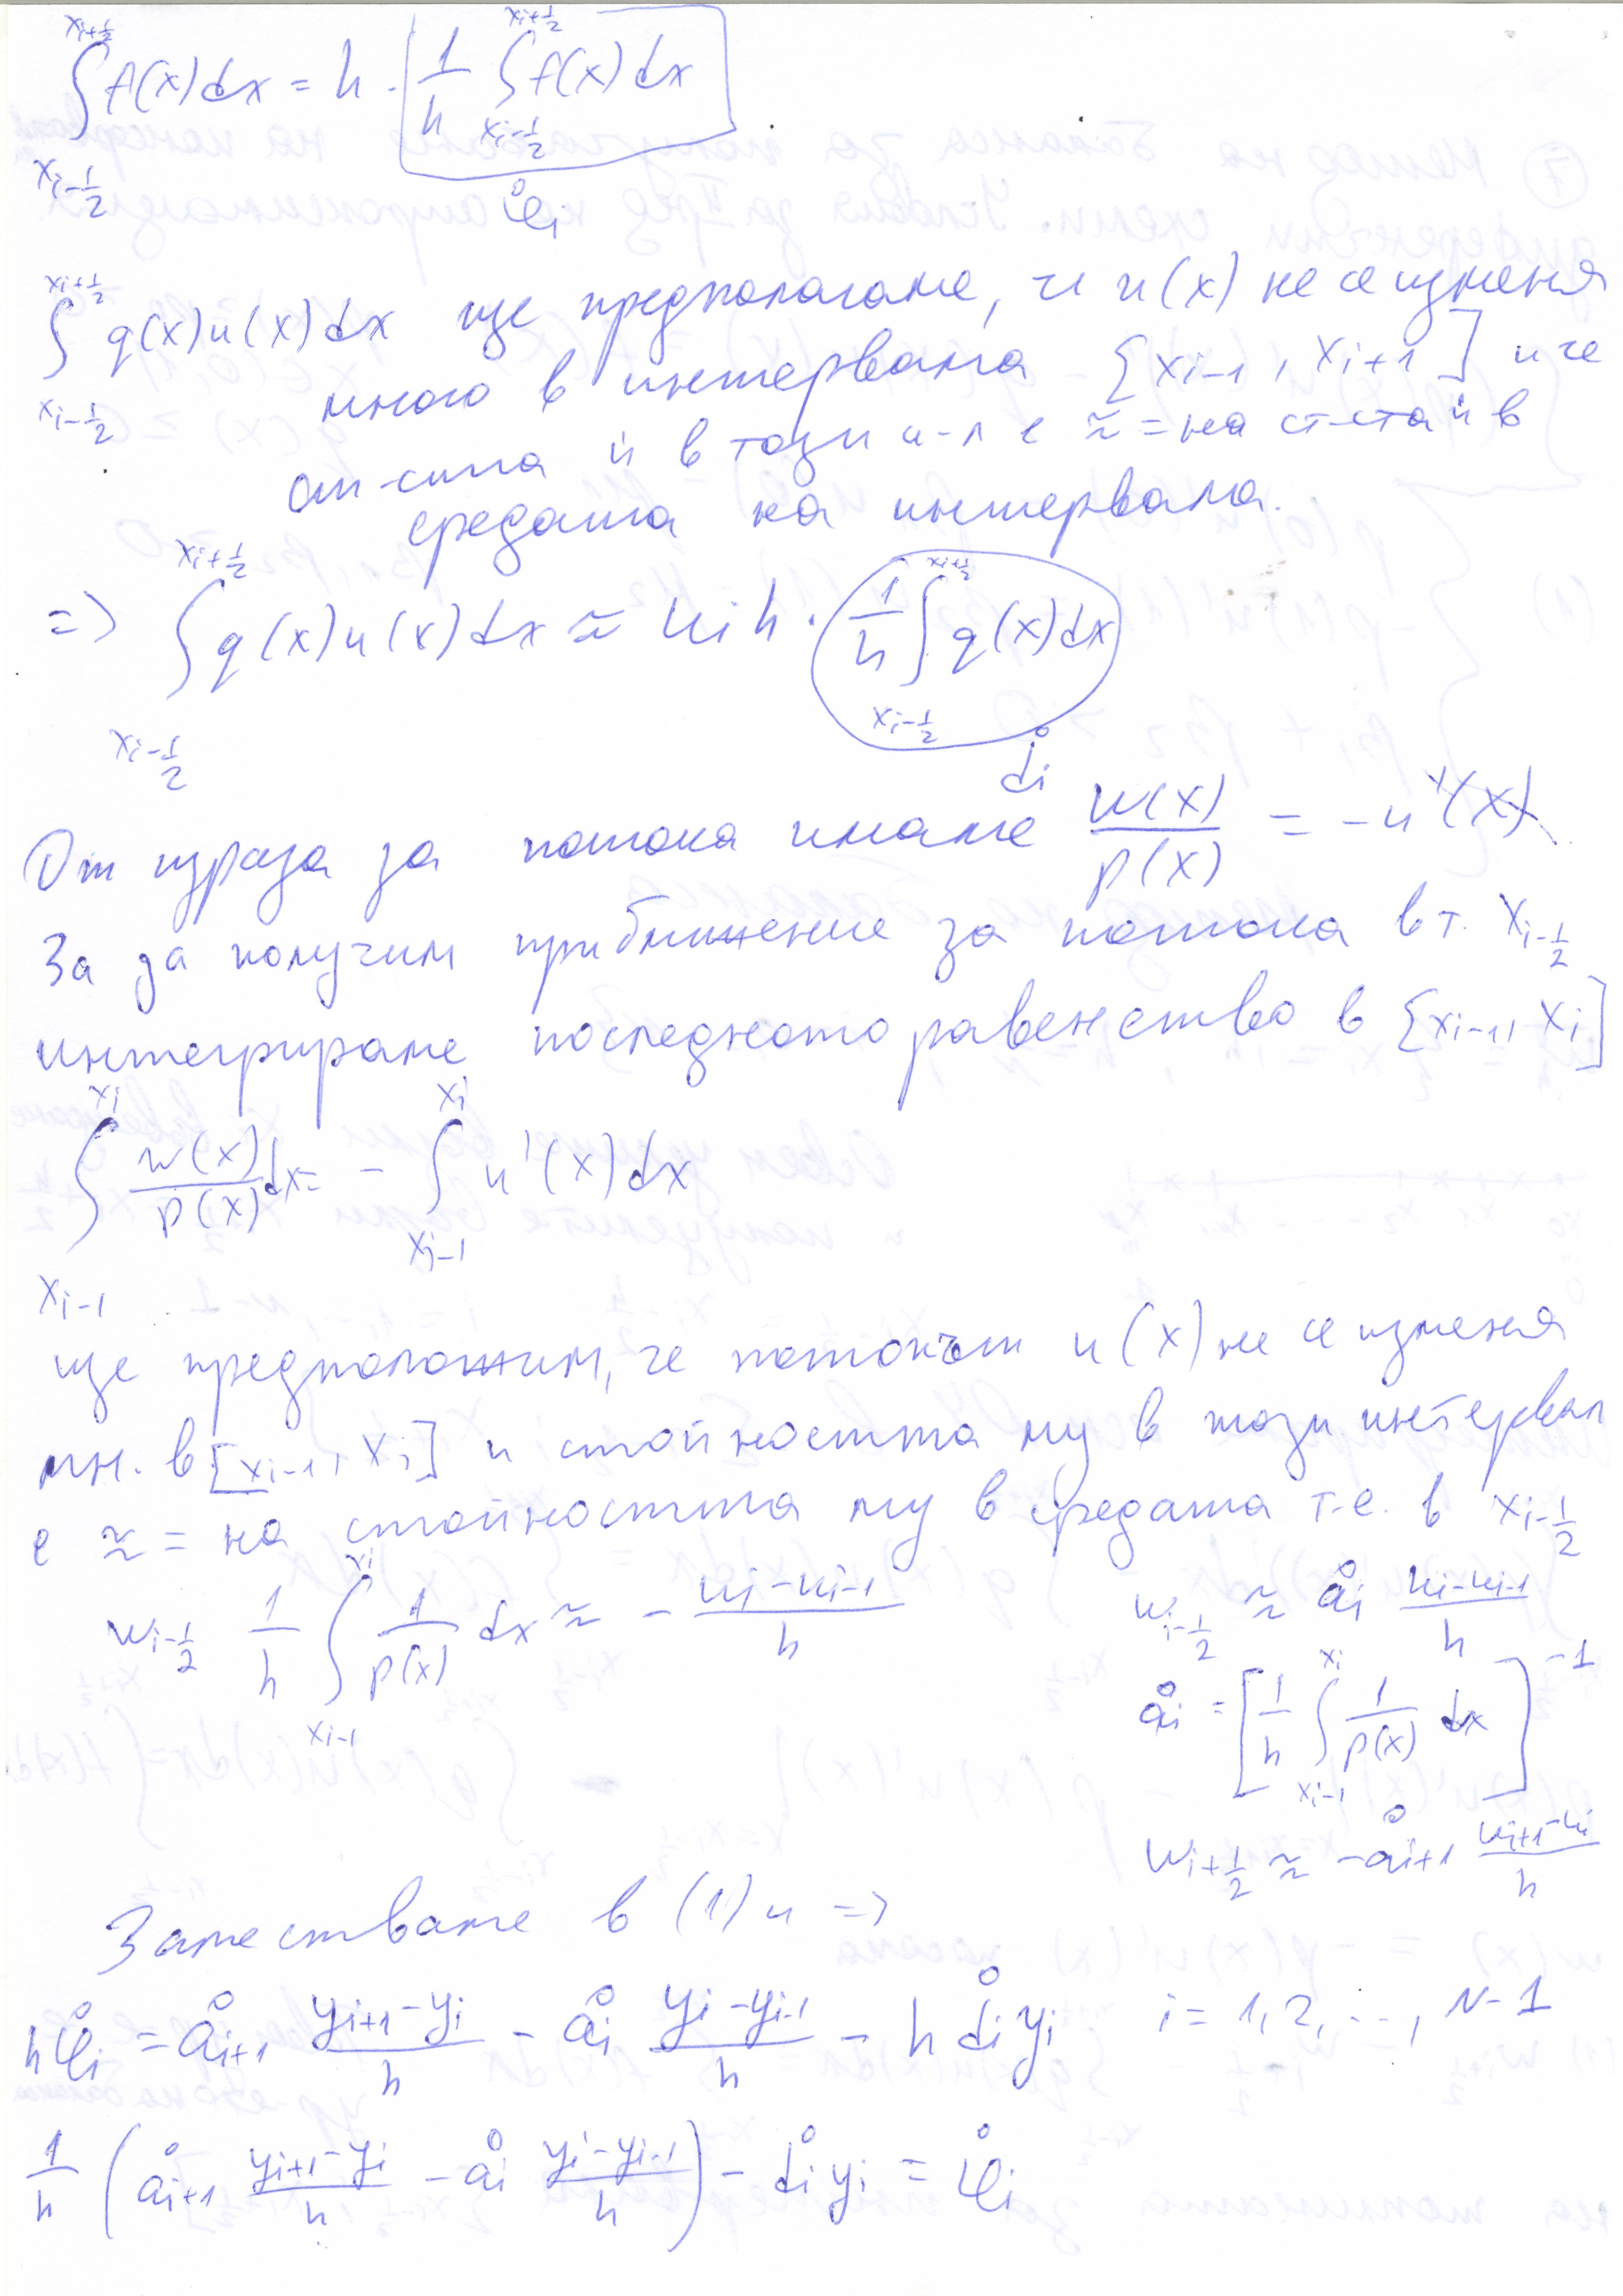 ∫_{x_{i-1/2}}^{x_{i+1/2}} f(x)dx = h · [ 1/h ∫_{x_{i-1/2}}^{x_{i+1/2}} f(x)dx ]
φ̊_i
∫_{x_{i-1/2}}^{x_{i+1/2}} q(x)u(x)dx ще предполагаме, че u(x) не се изменя
много в интервала [x_{i-1}, x_{i+1}] и че
ст-стта ѝ в този и-л е ≈ = на ст-ста ѝ в
средата на интервала.
=> ∫_{x_{i-1/2}}^{x_{i+1/2}} q(x)u(x)dx ≈ u_i h · ( 1/h ∫_{x_{i-1/2}}^{x_{i+1/2}} q(x)dx )
d̊_i
От израза за потока имаме w(x)/p(x) = -u'(x)
За да получим приближение за потока в т. x_{i-1/2}
интегрираме последното равенство в [x_{i-1}, x_i]
∫_{x_{i-1}}^{x_i} w(x)/p(x) dx = - ∫_{x_{i-1}}^{x_i} u'(x)dx
ще предположим, че потокът u(x) не се изменя
мн. в [x_{i-1}, x_i] и стойността му в този интервал
е ≈ = на стойността му в средата т.е. в x_{i-1/2}
w_{i-1/2} 1/h ∫_{x_{i-1}}^{x_i} 1/p(x) dx ≈ - (u_i - u_{i-1})/h
w_{i-1/2} ≈ å_i (u_i - u_{i-1})/h
å_i = [ 1/h ∫_{x_{i-1}}^{x_i} 1/p(x) dx ]^{-1}
w_{i+1/2} ≈ -å_{i+1} (u_{i+1} - u_i)/h
Заместваме в (1) и =>
hφ̊_i = å_{i+1} (y_{i+1} - y_i)/h - å_i (y_i - y_{i-1})/h - h d̊_i y_i   i = 1, 2, ..., N-1
1/h ( å_{i+1} (y_{i+1} - y_i)/h - å_i (y_i - y_{i-1})/h ) - d̊_i y_i = φ̊_i